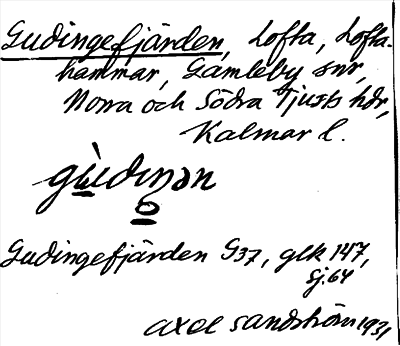 Gudingefjärden, Lofta, Lofta-
hammar, Gamleby snr,
Norra och Södra Tjusts hdr,
Kalmar l.
gùdiŋən
o
Gudingefjärden G37, glk 147,
sj. 64
Axel Sandström 1931